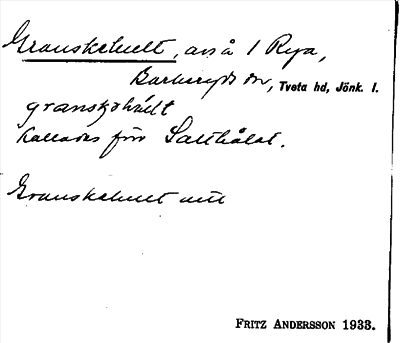 Granskehult, avs å 1 Rya,
Barkeryds sn, Tveta hd, Jönk. l.
granskəhúlt
Kallades förr Salthålet.
Granskehult
FRITZ ANDERSSON 1933.